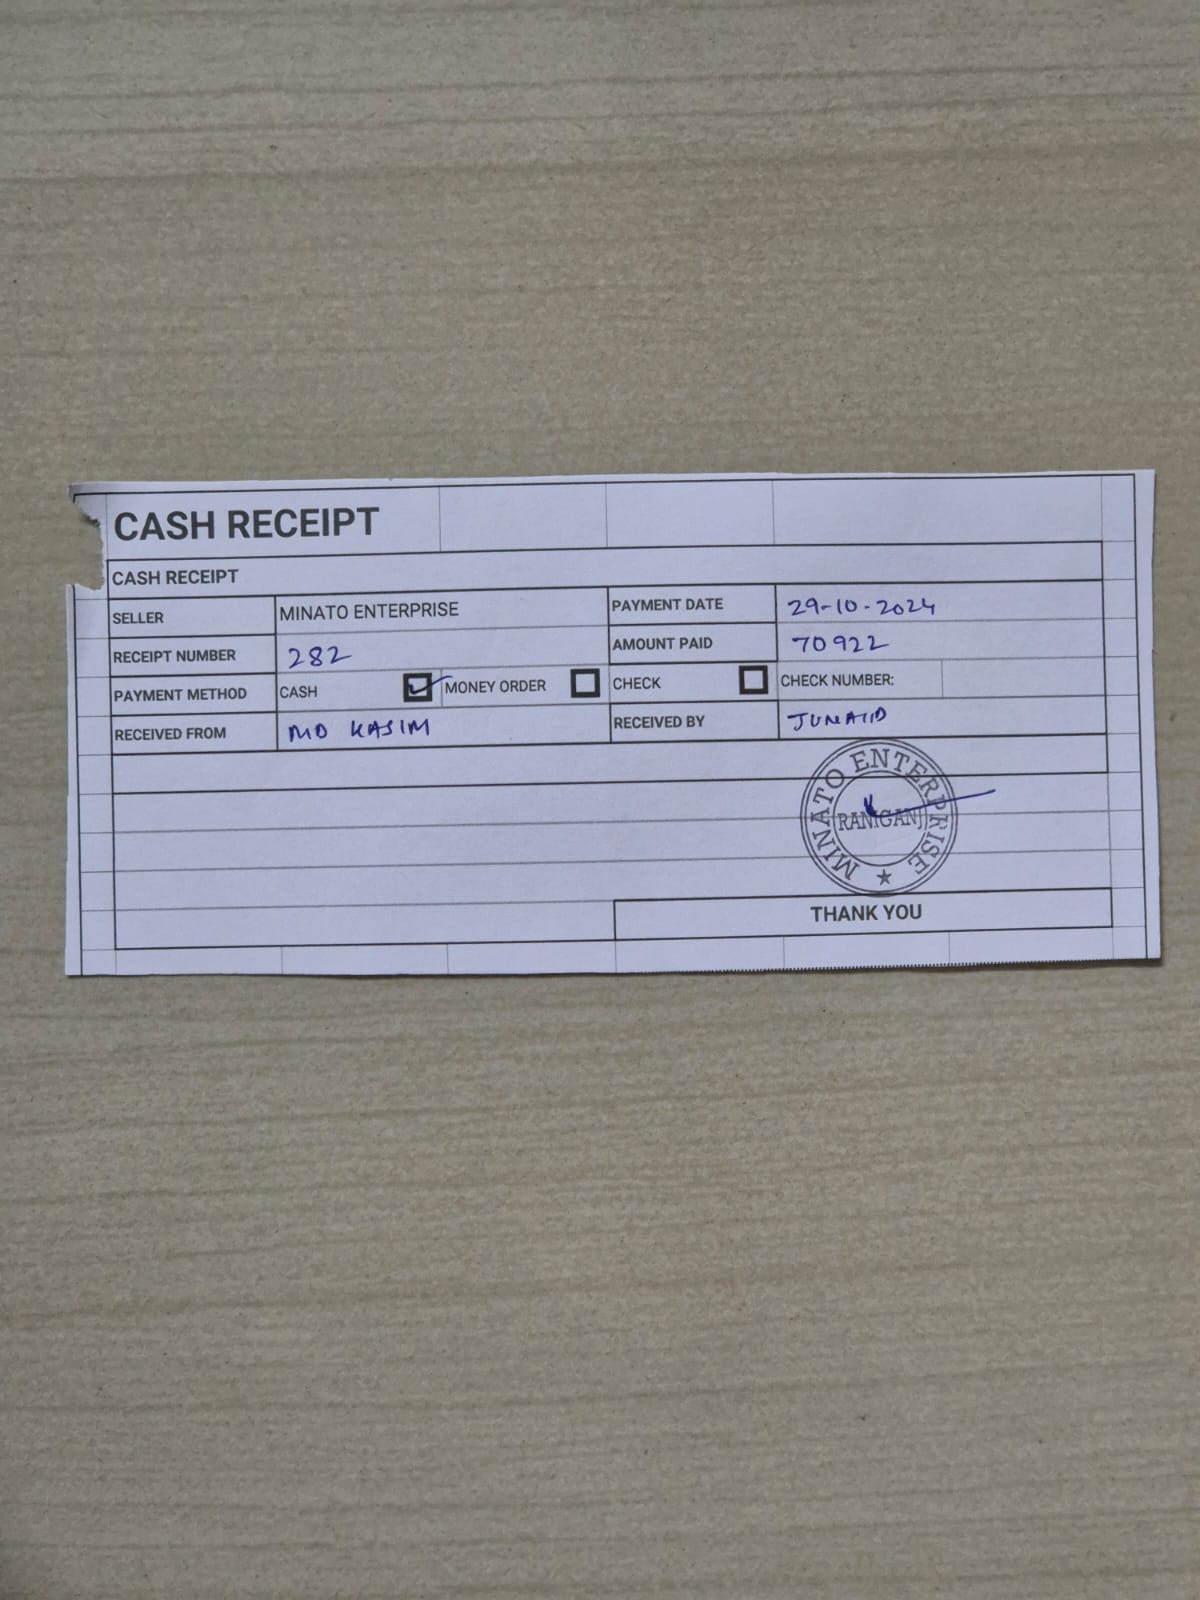 CASH RECEIPT
CASH RECEIPT
SELLER MINATO ENTERPRISE PAYMENT DATE 29-10-2024
RECEIPT NUMBER 282 AMOUNT PAID 70922
PAYMENT METHOD CASH MONEY ORDER CHECK CHECK NUMBER:
RECEIVED FROM MD KASIM RECEIVED BY JUNAID
MINATO ENTERPRISE
RANIGANJ
THANK YOU